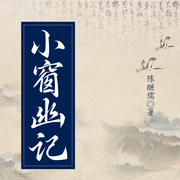 小窗幽记
陈继儒◎著